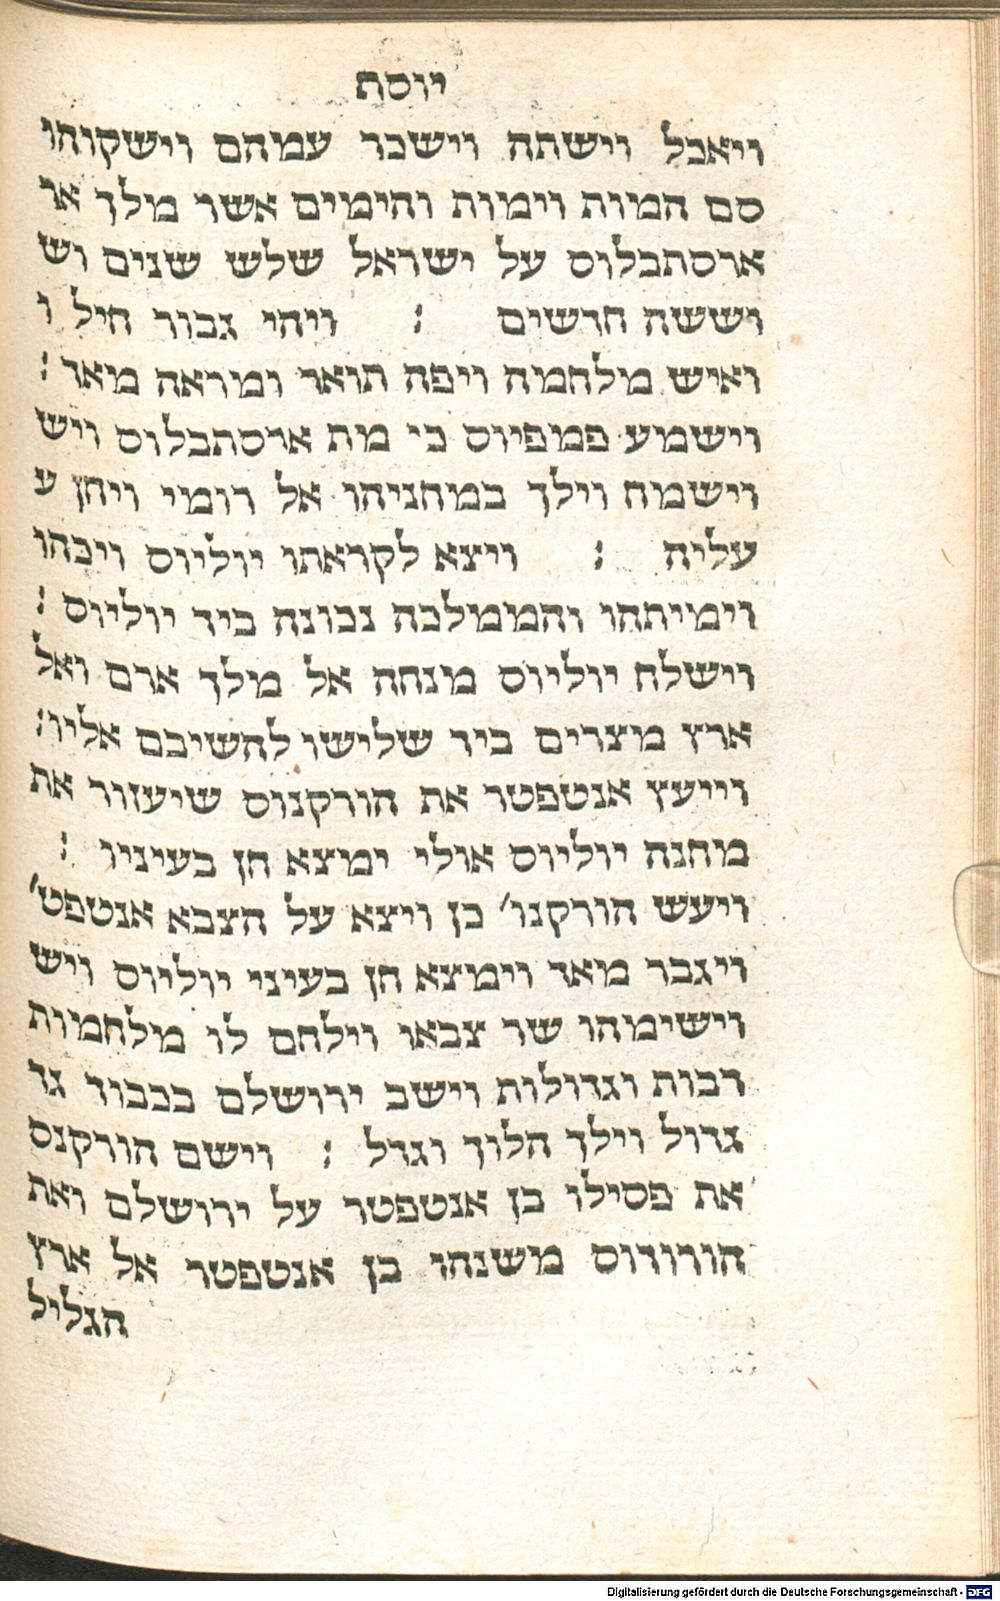 יוסת
ויאכל וישתה וישכר עמהם וישקוהו
סם המות וימות והימים אשר מלך אר
ארסתבלוס על ישראל שלש שנים וש
וששה חדשים : ויהי גבור חיל ו
ואיש מלחמה ויפה תואר ומראה מאד :
וישמע פמפיוס כי מת ארסתבלוס ויש
וישמח וילך במחניהו אל רומי ויחן ע
עליה : ויצא לקראתו יוליוס ויכהו
וימיתהו והממלכה נכונה ביד יוליוס :
וישלח יוליוס מנחה אל מלך ארם ואל
ארץ מצרים ביד שלישו להשיבם אליו :
וייעץ אנטפטר את הורקנוס שיעזור את
מחנה יוליוס אולי ימצא חן בעיניו :
ויעש הורקנו׳ כן ויצא על הצבא אנטפט׳
ויגבר מאד וימצא חן בעיני יוליוס ויש
וישימהו שר צבאו וילחם לו מלחמות
רבות וגדולות וישב ירושלם בכבוד גד
גדול וילך הלוך וגדל : וישם הורקנס
את פסילו בן אנטפטר על ירושלם ואת
הורודוס משנהו בן אנטפטר אל ארץ
הגליל
Digitalisierung gefördert durch die Deutsche Forschungsgemeinschaft - DFG